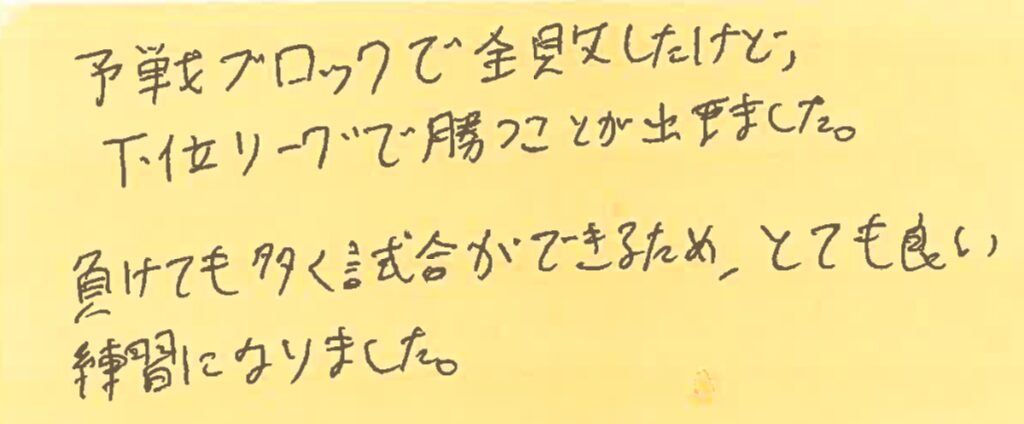 予戦ブロックで全敗したけど、
下位リーグで勝つことが出来ました。
負けても多く試合ができるため、とても良い
練習になりました。